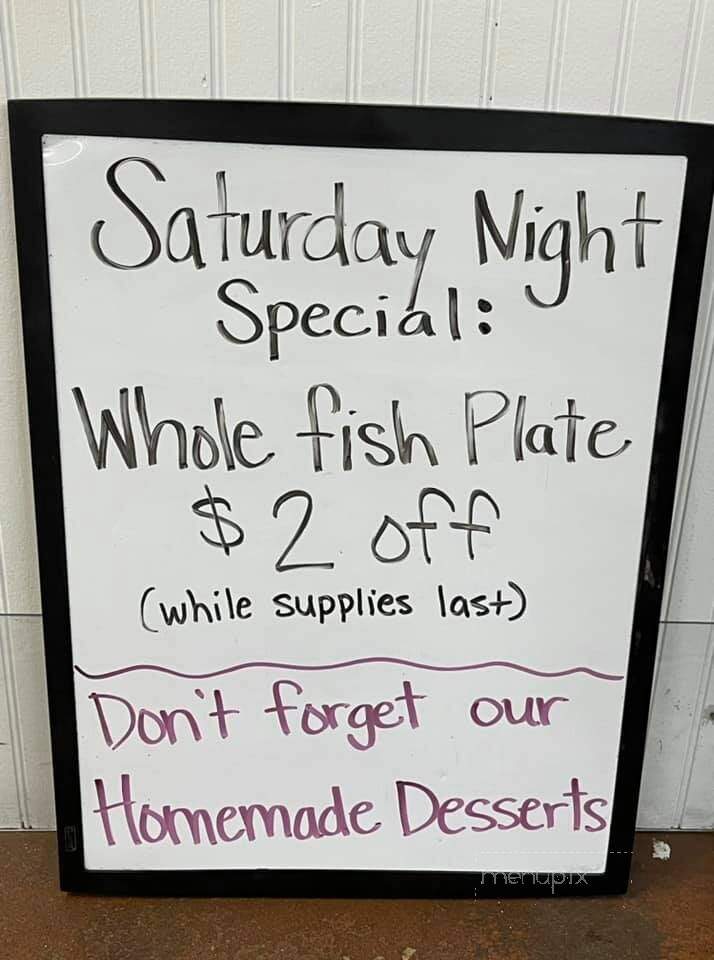 Saturday Night
Special:
Whole fish Plate
$2 off
(while supplies last)
Don't forget our
Homemade Desserts
menupix